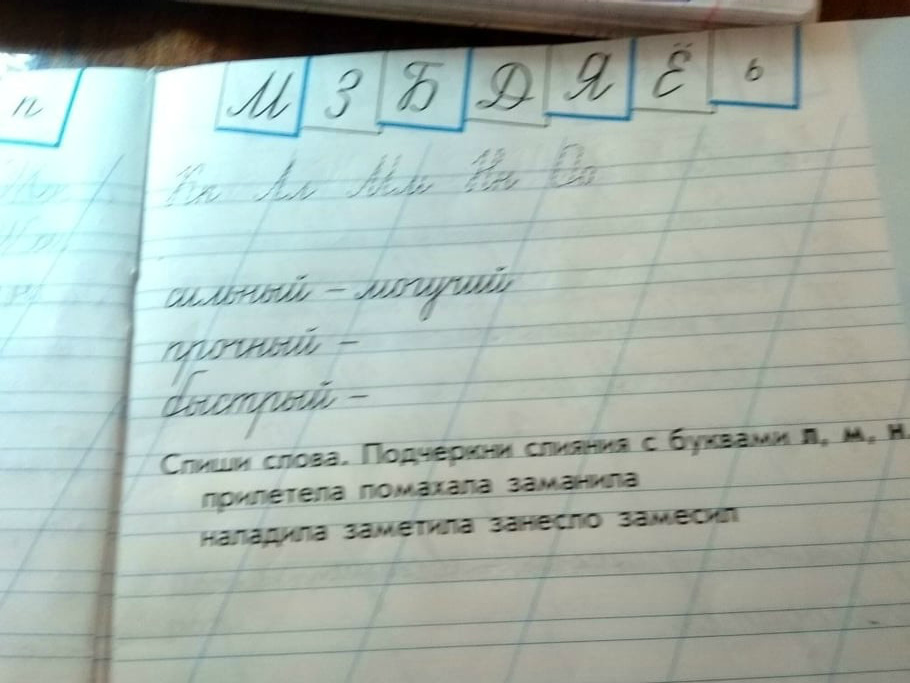 п
М З Б Д Я Ё ь
Кк Лл Мм Нн Оо
сильный – могучий
прочный –
быстрый –
Спиши слова. Подчеркни слияния с буквами л, м, н.
прилетела помахала заманила
наладила заметила занесло замесил